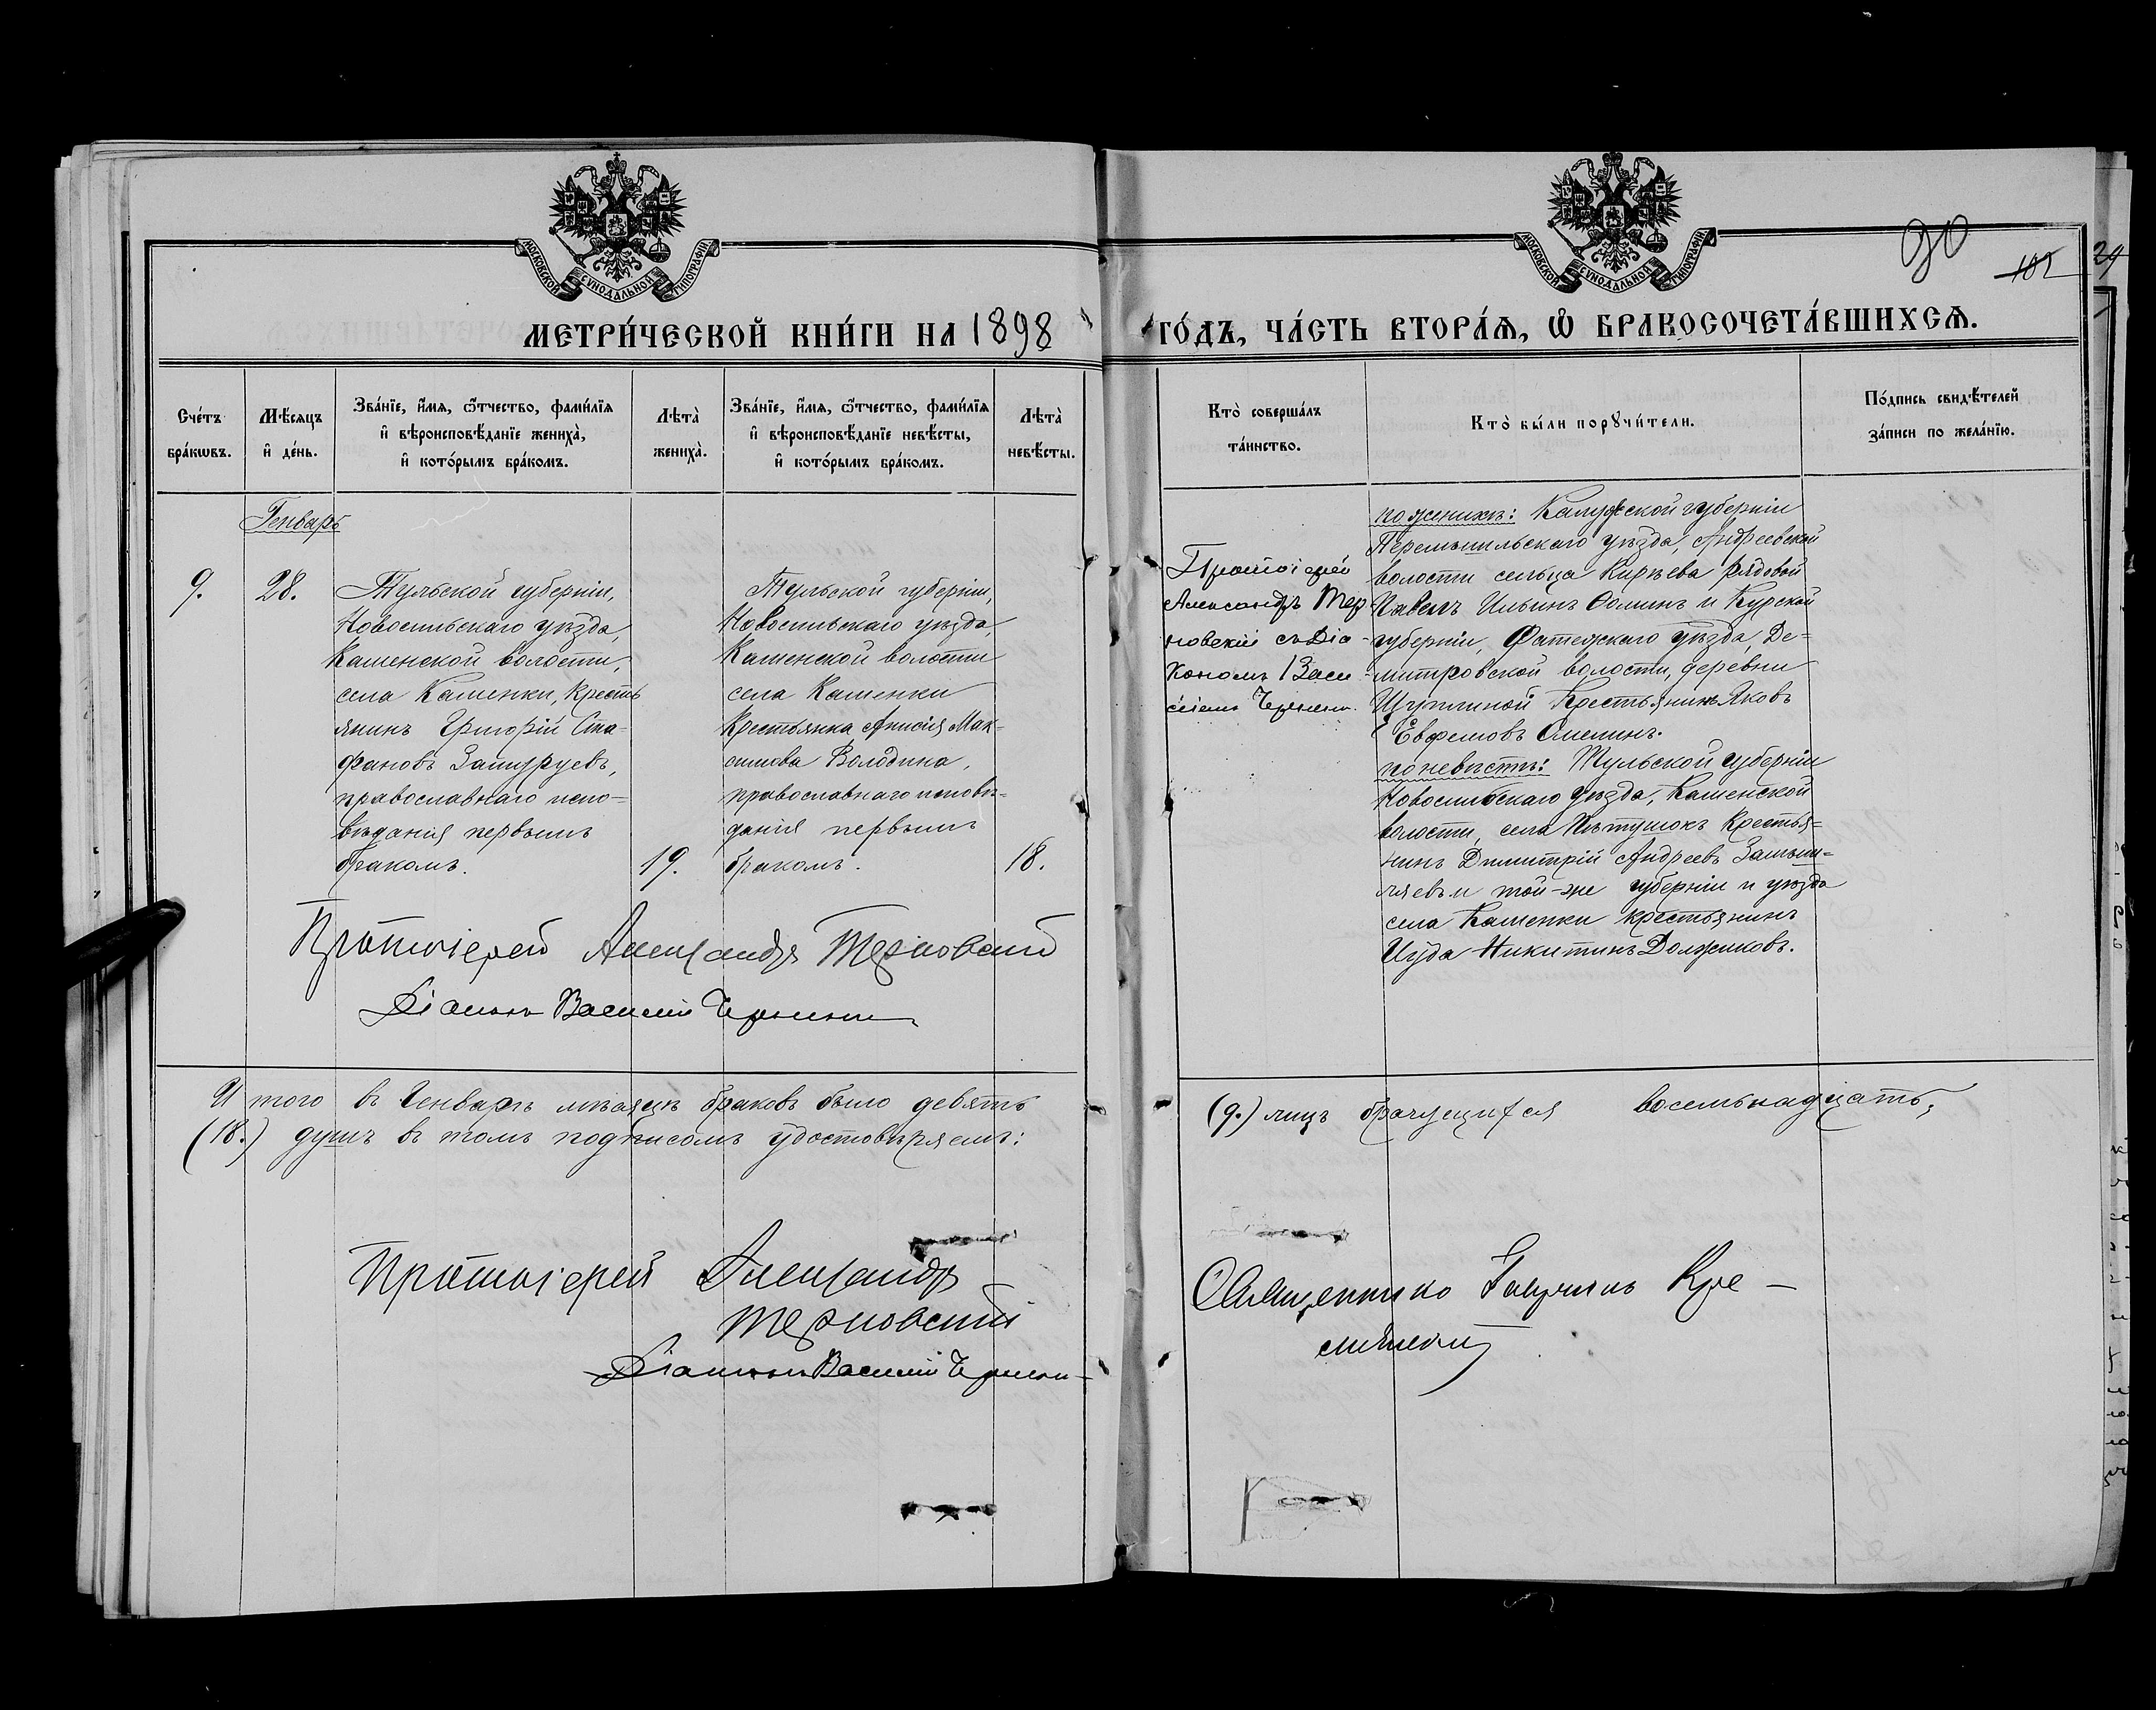 МОСКОВСКОЙ СУНОДАЛЬНОЙ ТИПОГРАФІИ
МОСКОВСКОЙ СУНОДАЛЬНОЙ ТИПОГРАФІИ
30
102
24
МЕТРИ́ЧЕСКОЙ КНИ́ГИ НА 1898
ГО́ДЪ, ЧА́СТЬ ВТОРА́Ѧ, Ѿ БРАКОСОЧЕТА́ВШИХСѦ.
Сче́тъ
бра́кѡвъ.
Мѣ́сяцъ
и҆ де́нь.
Зва́нїе, и҆́мя, ѻ҆́тчество, фами́лїя
и҆ вѣроисповѣ́данїе жениха̀,
и҆ кото́рымъ бра́комъ.
Лѣта̀
жениха̀.
Зва́нїе, и҆́мя, ѻ҆́тчество, фами́лїя
и҆ вѣроисповѣ́данїе невѣ́сты,
и҆ кото́рымъ бра́комъ.
Лѣта̀
невѣ́сты.
Кто̀ соверша́лъ
та́инство.
Кто̀ бы́ли порꙋчи́тели.
По́дпись свидѣ́телей
за́писи по жела́нїю.
Генварь
9.
28.
Тульской губерніи,
Новосильскаго уѣзда,
Каменской волости,
села Каменки, кресть
янинъ Григорій Сте-
фановъ Замуруевъ,
православнаго испо-
вѣданія первымъ
бракомъ.
19.
Тульской губерніи,
Новосильскаго уѣзда,
Каменской волости
села Каменки
крестьянка Анисія Мак-
симова Володина,
православнаго исповѣ-
данія первымъ
бракомъ.
18.
Протоіерей
Александръ Тер
новскій съ Діа-
кономъ Васи-
ліемъ
по женихѣ: Калужской губерніи
Перемышльскаго уѣзда, Андреевской
волости сельца Кирѣева рядовой
Павелъ Ильинъ Ѳоминъ и Курской
губерніи, Фатежскаго уѣзда, Де-
митровской волости, деревни
Щуплиной крестьянинъ Яковъ
Евфемовъ Омелинъ.
по невѣстѣ: Тульской губерніи
Новосильскаго уѣзда, Каменской
волости, села Пѣтушокъ крестья-
нинъ Димитрій Андреевъ Замыш-
ляевъ и той-же губерніи и уѣзда
села Каменки крестьянинъ
Иуда Никитинъ Должиковъ.
Протоіерей Александръ Терновскій
Діаконъ Василій
Итого въ Генварѣ мѣсяцѣ браковъ было девять
(9.) лицъ брачущихся восемьнадцать,
(18.) душъ въ томъ подписомъ удостовѣряемъ:
Протоіерей Александръ
Терновскій
Діаконъ Василій
Священникъ